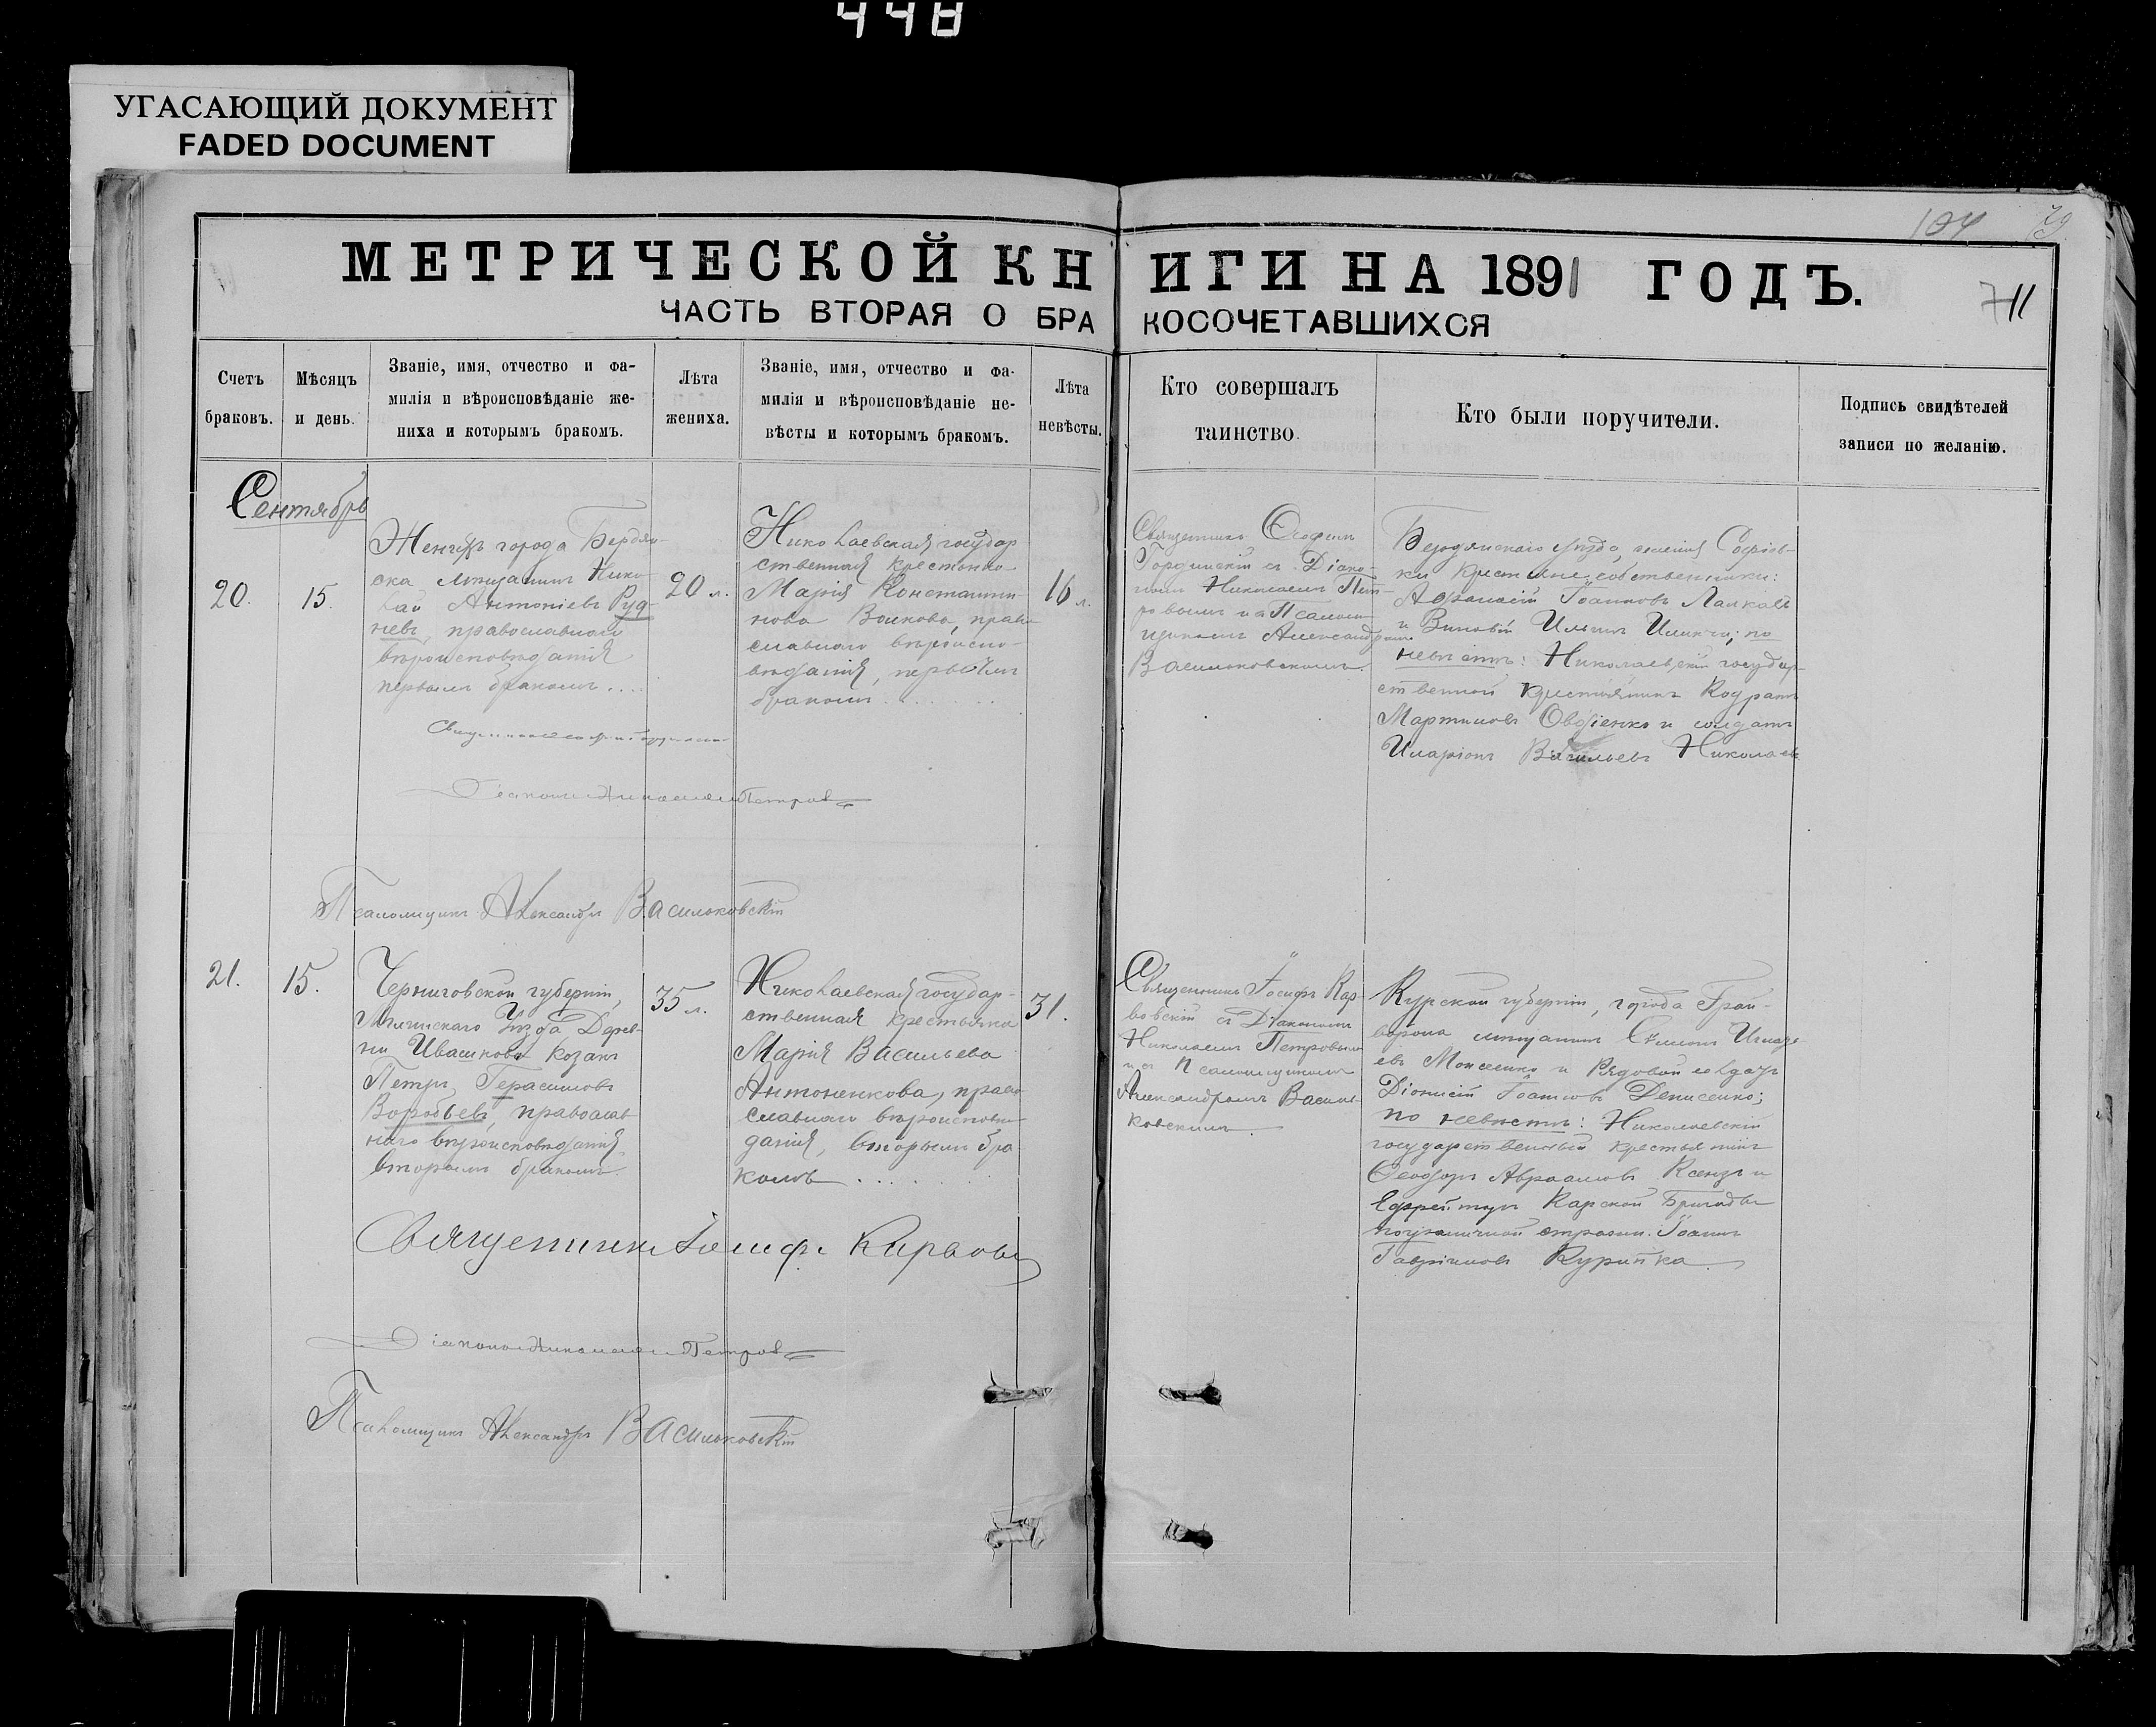 448
УГАСАЮЩИЙ ДОКУМЕНТ
FADED DOCUMENT
104
79
МЕТРИЧЕСКОЙ КНИГИ НА 1891 ГОДЪ.
711
ЧАСТЬ ВТОРАЯ О БРАКОСОЧЕТАВШИХСЯ
Счетъ
браковъ.
Мѣсяцъ
и день.
Званіе, имя, отчество и фа-
милія и вѣроисповѣданіе же-
ниха и которымъ бракомъ.
Лѣта
жениха.
Званіе, имя, отчество и фа-
милія и вѣроисповѣданіе не-
вѣсты и которымъ бракомъ.
Лѣта
невѣсты.
Кто совершалъ
таинство.
Кто были поручители.
Подпись свидѣтелей
записи по желанію.
Сентябрь
20.
15.
Женихъ города Бердян-
ска мѣщанинъ Нико-
лай Антоніевъ Руд-
невъ, православнаго
вѣроисповѣданія
первымъ бракомъ....
20 л.
Николаевская государ
ственная крестьянка
Марія Константи-
нова Волкова, право
славнаго вѣроиспо-
вѣданія, первымъ
бракомъ
16 л.
Священникъ
съ Діако-
номъ Николаемъ Пет-
ровымъ и Псалом
щикомъ Александромъ
Васильковскимъ.
Бердянскаго уѣзда, Софіев-
ки крестьяне собственники:
Афанасій Іоанновъ
и Ильинъ по
невѣстѣ: Николаевскій государ-
ственный крестьянинъ Кодратъ
Мартиновъ Овдіенко и солдатъ
Иларіонъ Васильевъ Николаев
Діаконъ Николай Петровъ
Псаломщикъ Александръ Васильковскій
21.
15.
Черниговской губерніи,
Мглинскаго Уѣзда Дерев-
ни Ивашкова козакъ
Петръ Герасимовъ
Воробьевъ, православ
наго вѣроисповѣданія,
вторымъ бракомъ.
35 л.
Николаевская государ-
ственная крестьянка
Марія Васильева
Антоненкова, право
славнаго вѣроисповѣ-
данія, вторымъ бра
комъ
31.
Священникъ Іосифъ Кар-
ъ Діакономъ
Николаемъ Петровымъ
и Псаломщикомъ
Александромъ Василь-
ковскимъ
Курской губерніи, города Грай-
ворона мѣщанинъ Симеонъ Игнать-
евъ и Рядовой солдатъ
Діонисій Іоанновъ Денисенко;
по невѣстѣ: Николаевскій
государственный крестьянинъ
Ѳеодоръ Авраамовъ Ксензъ и
Ефрейторъ Карской Бригады
пограничной стражи Іоаннъ
Гавріиловъ Курипка
Священникъ Іосифъ
Діаконъ Николай Петровъ
Псаломщикъ Александръ Васильковскій